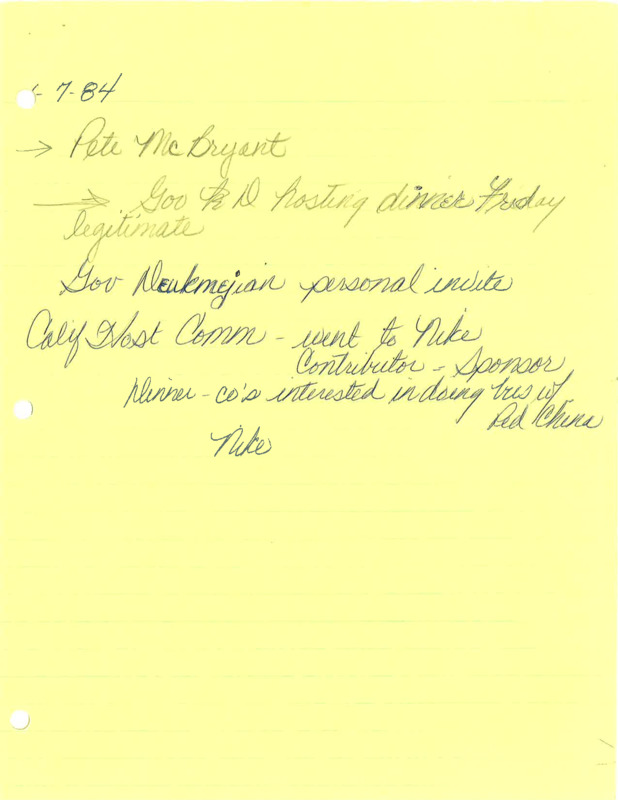 - 7-84
→ Pete McBryant
→ Gov D hosting dinner Friday
legitimate
Gov Deukmejian personal invite
Calif Host Comm - went to Nike
Contributor - Sponsor
Dinner - co's interested in doing bus w/
Red China
Nike